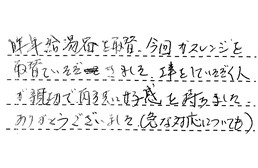 昨年給湯器を取替、今回ガスレンジを
取替ていただきました。工事をしていただく人
が親切で内容良い好感を持ちました
ありがとうございました(急な対応についても)